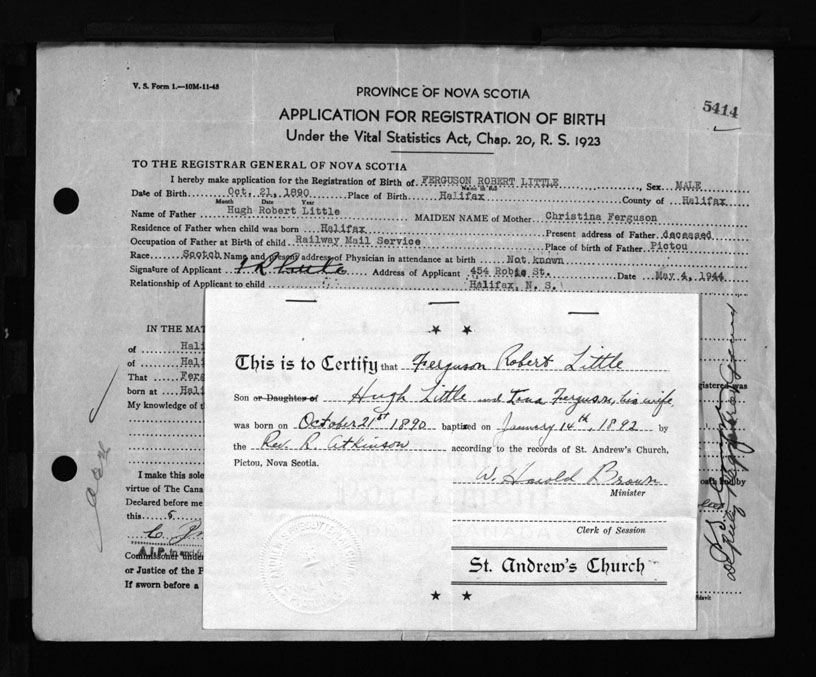 V. S. Form 1.—10M-11-43
PROVINCE OF NOVA SCOTIA
5414
APPLICATION FOR REGISTRATION OF BIRTH
Under the Vital Statistics Act, Chap. 20, R. S. 1923
TO THE REGISTRAR GENERAL OF NOVA SCOTIA
I hereby make application for the Registration of Birth of FERGUSON ROBERT LITTLE, Sex MALE
Name in full
Date of Birth Oct. 21, 1890 Place of Birth Halifax County of Halifax
Month Date Year
Name of Father Hugh Robert Little MAIDEN NAME of Mother Christina Ferguson
Residence of Father when child was born Halifax Present address of Father deceased
Occupation of Father at Birth of child Railway Mail Service Place of birth of Father Pictou
Race Scotch Name and present address of Physician in attendance at birth Not known
Signature of Applicant Little Address of Applicant 454 Robie St. Date May 4, 1944
Relationship of Applicant to child Halifax, N. S.
IN THE MAT
of Hali
of Hali
That Ferg
born at Hali
My knowledge of t
I make this sole
virtue of The Cana
Declared before me
this 5
A.J.P. in and
Commissioner unde
or Justice of the P
If sworn before a
gistered was
This is to Certify that Ferguson Robert Little
Son or Daughter of Hugh Little and Iona Ferguson, his wife
was born on October 21st 1890 baptized on January 14th, 1892 by
the Rev. R. Atkinson according to the records of St. Andrew's Church,
Pictou, Nova Scotia.
W. Harold Brown
Minister
Clerk of Session
St. Andrew's Church
Deputy Registrar General